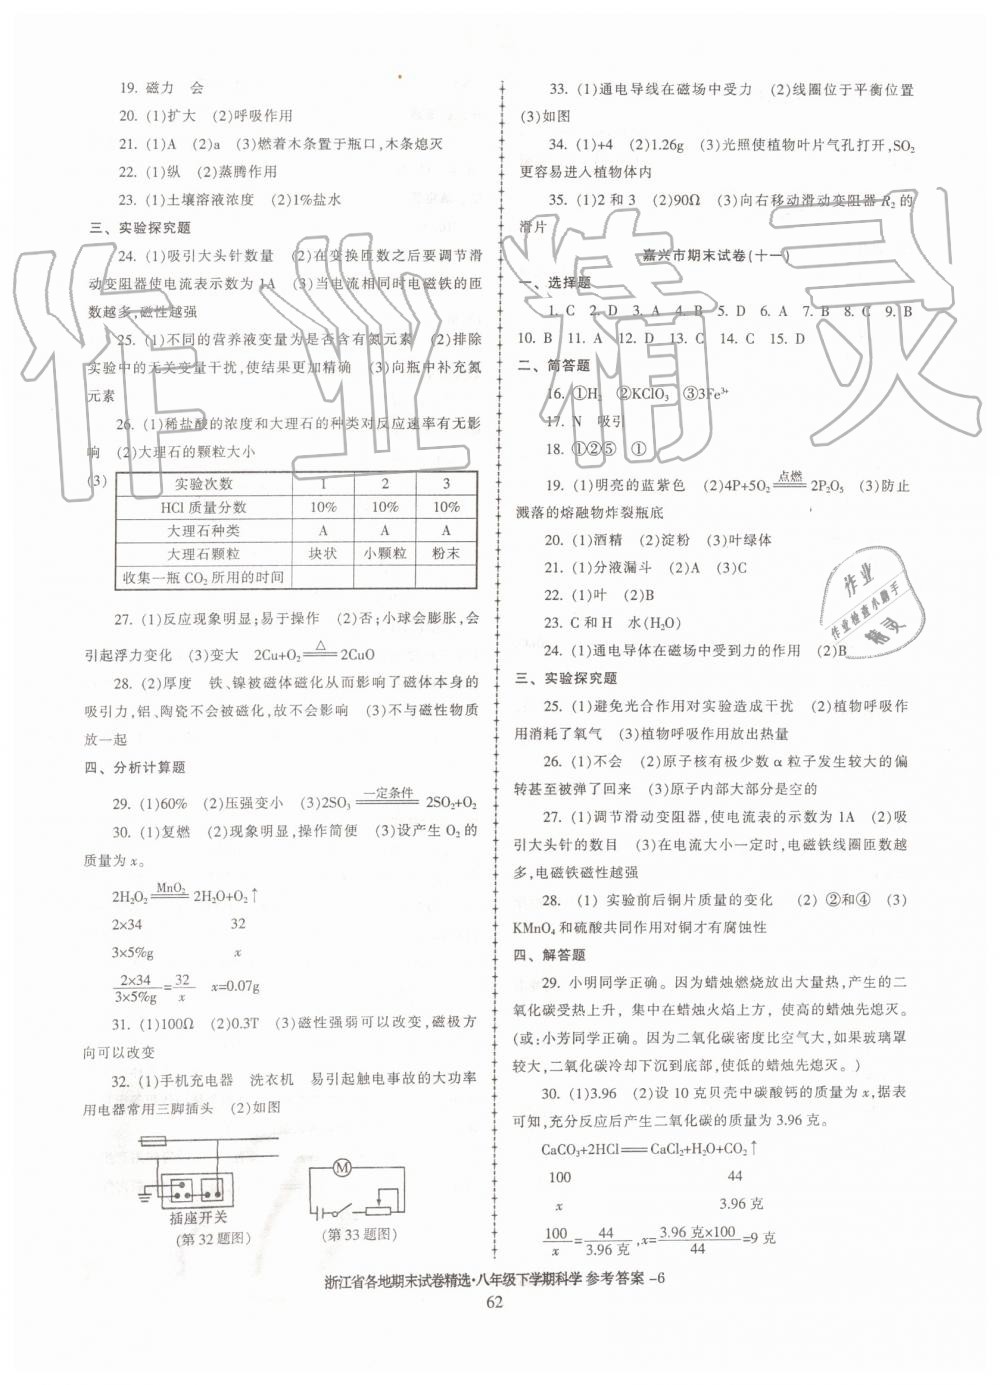 19. 磁力　会
20. (1)扩大　(2)呼吸作用
21. (1)A　(2)a　(3)燃着木条置于瓶口,木条熄灭
22. (1)纵　(2)蒸腾作用
23. (1)土壤溶液浓度　(2)1%盐水
三、实验探究题
24. (1)吸引大头针数量　(2)在变换匝数之后要调节滑
动变阻器使电流表示数为1A　(3)当电流相同时电磁铁的匝
数越多,磁性越强
25. (1)不同的营养液变量为是否含有氮元素　(2)排除
实验中的无关变量干扰,使结果更加精确　(3)向瓶中补充氮
元素
26. (1)稀盐酸的浓度和大理石的种类对反应速率有无影
响　(2)大理石的颗粒大小
(3)
实验次数　1　2　3
HCl 质量分数　10%　10%　10%
大理石种类　A　A　A
大理石颗粒　块状　小颗粒　粉末
收集一瓶 CO₂ 所用的时间
27. (1)反应现象明显;易于操作　(2)否;小球会膨胀,会
引起浮力变化　(3)变大　2Cu+O₂ =△= 2CuO
28. (2)厚度　铁、镍被磁体磁化从而影响了磁体本身的
吸引力,铝、陶瓷不会被磁化,故不会影响　(3)不与磁性物质
放一起
四、分析计算题
29. (1)60%　(2)压强变小　(3)2SO₃ =一定条件= 2SO₂+O₂
30. (1)复燃　(2)现象明显,操作简便　(3)设产生 O₂ 的
质量为 x。
2H₂O₂ =MnO₂= 2H₂O+O₂↑
2×34　32
3×5%g　x
2×34/3×5%g=32/x　x=0.07g
31. (1)100Ω　(2)0.3T　(3)磁性强弱可以改变,磁极方
向可以改变
32. (1)手机充电器　洗衣机　易引起触电事故的大功率
用电器常用三脚插头　(2)如图
M
插座开关
(第 32 题图)　(第 33 题图)
33. (1)通电导线在磁场中受力　(2)线圈位于平衡位置
(3)如图
34. (1)+4　(2)1.26g　(3)光照使植物叶片气孔打开,SO₂
更容易进入植物体内
35. (1)2 和 3　(2)90Ω　(3)向右移动滑动变阻器 R₂ 的
滑片
嘉兴市期末试卷(十一)
一、选择题
1. C　2. D　3. A　4. B　5. D　6. A　7. B　8. C　9. B
10. B　11. A　12. D　13. C　14. C　15. D
二、简答题
16. ①H₂　②KClO₃　③3Fe³⁺
17. N　吸引
18. ①②⑤　①
19. (1)明亮的蓝紫色　(2)4P+5O₂ =点燃= 2P₂O₅　(3)防止
溅落的熔融物炸裂瓶底
20. (1)酒精　(2)淀粉　(3)叶绿体
21. (1)分液漏斗　(2)A　(3)C
22. (1)叶　(2)B
23. C 和 H　水(H₂O)
24. (1)通电导体在磁场中受到力的作用　(2)B
三、实验探究题
25. (1)避免光合作用对实验造成干扰　(2)植物呼吸作
用消耗了氧气　(3)植物呼吸作用放出热量
26. (1)不会　(2)原子核有极少数 α 粒子发生较大的偏
转甚至被弹了回来　(3)原子内部大部分是空的
27. (1)调节滑动变阻器,使电流表的示数为 1A　(2)吸
引大头针的数目　(3)在电流大小一定时,电磁铁线圈匝数越
多,电磁铁磁性越强
28. (1) 实验前后铜片质量的变化　(2) ②和④　(3)
KMnO₄ 和硫酸共同作用对铜才有腐蚀性
四、解答题
29. 小明同学正确。因为蜡烛燃烧放出大量热,产生的二
氧化碳受热上升，集中在蜡烛火焰上方，使高的蜡烛先熄灭。
(或:小芳同学正确。因为二氧化碳密度比空气大,如果玻璃罩
较大,二氧化碳冷却下沉到底部,使低的蜡烛先熄灭。)
30. (1)3.96　(2)设 10 克贝壳中碳酸钙的质量为 x,据表
可知,充分反应后产生二氧化碳的质量为 3.96 克。
CaCO₃+2HCl══CaCl₂+H₂O+CO₂↑
100　44
x　3.96 克
100/x=44/3.96 克,x=3.96 克×100/44=9 克
作业精灵
作业
作业检查小助手
精灵
浙江省各地期末试卷精选·八年级下学期科学 参考答案 -6
62